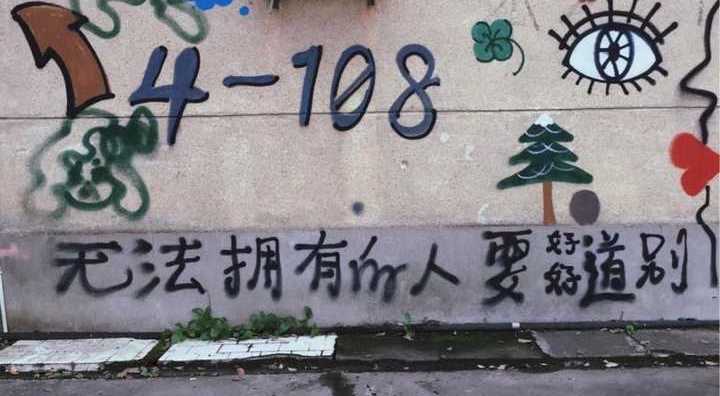 4-108
无法拥有的人要好好道别